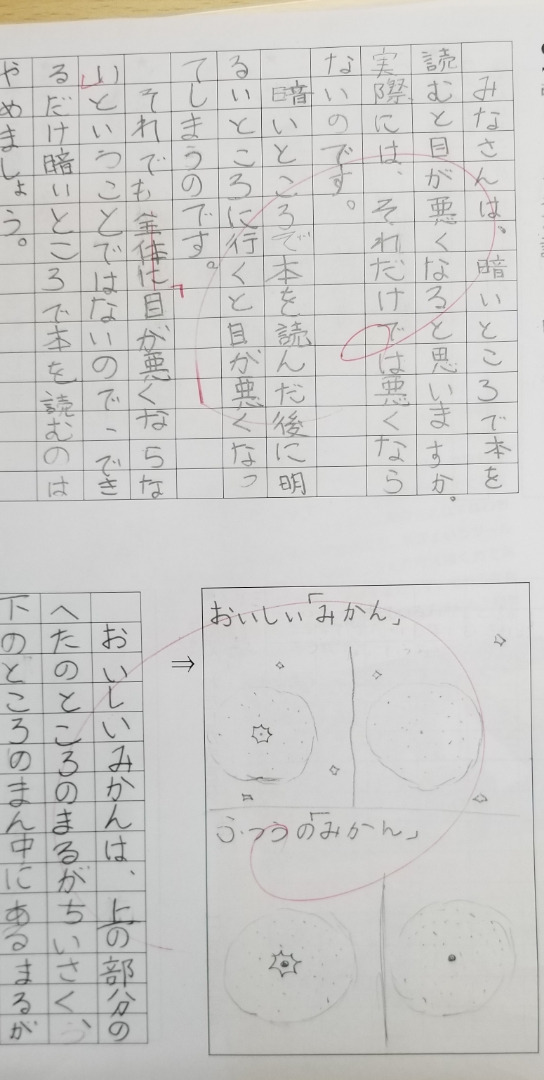 みなさんは、暗いところで本を
読むと目が悪くなると思いますか。
実際には、それだけでは悪くなら
ないのです。
暗いところで本を読んだ後に明
るいところに行くと目が悪くなっ
てしまうのです。
それでも全体に目が悪くならな
いということではないので、でき
るだけ暗いところで本を読むのは
やめましょう。
おいしい「みかん」
ふつうの「みかん」
⇒
おいしいみかんは、上の部分の
へたのところのまるがちいさく、
下のところのまん中にあるまるが